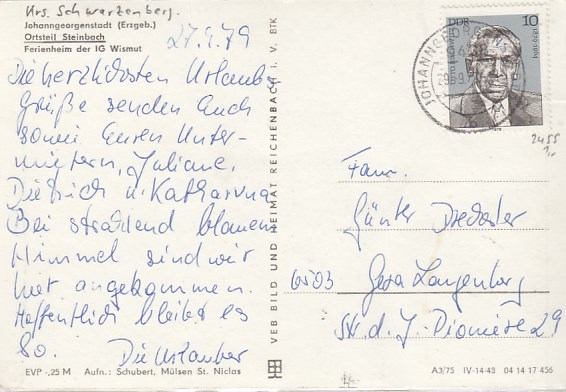 Krs. Schwarzenberg.
Johanngeorgenstadt (Erzgeb.)
Ortsteil Steinbach
Ferienheim der IG Wismut
27.4.79
Die herzlichsten Urlaubs
grüße senden Euch
sowie Euren Unter-
mietern, Juliane,
Dietrich u. Katharina
Bei strahlend blauem
Himmel sind wir
hier angekommen.
Hoffentlich bleibt es
so. Die Urlauber
EVP -,25 M Aufn.: Schubert, Mülsen St. Niclas
VEB BILD UND HEIMAT REICHENBACH I. V. BTK
DDR 10
JOHANN
2455
Fam.
Günter
6503 Gera Langenberg
Str. d. J. Pioniere 29
A3/75 IV-14-48 04 14 17 456